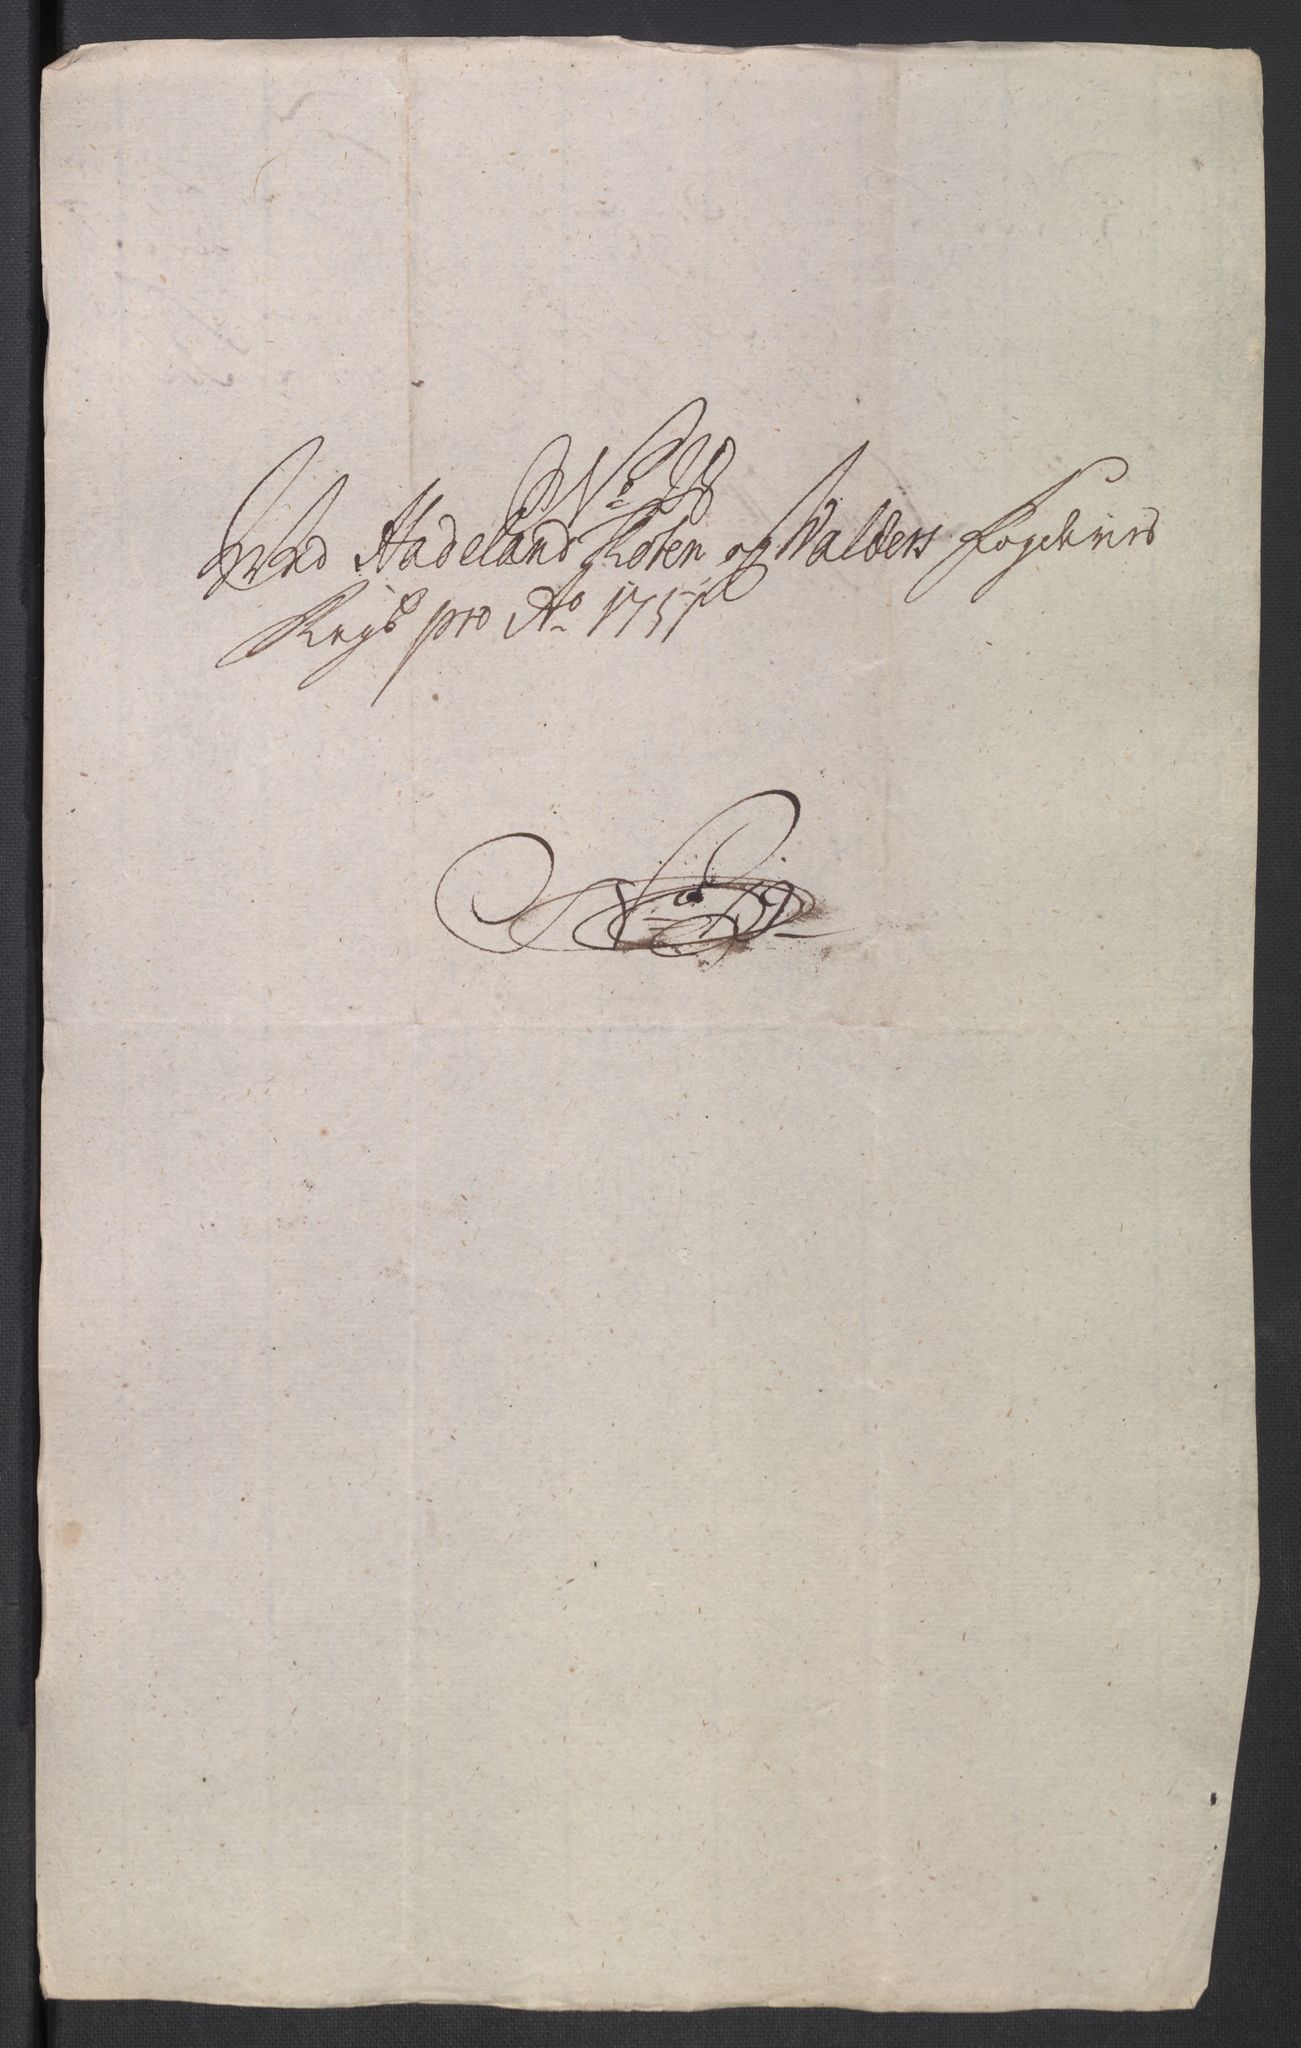 Ved Hadeland Toten og Walders Fogderies
Regsb pro Ao 1757
No